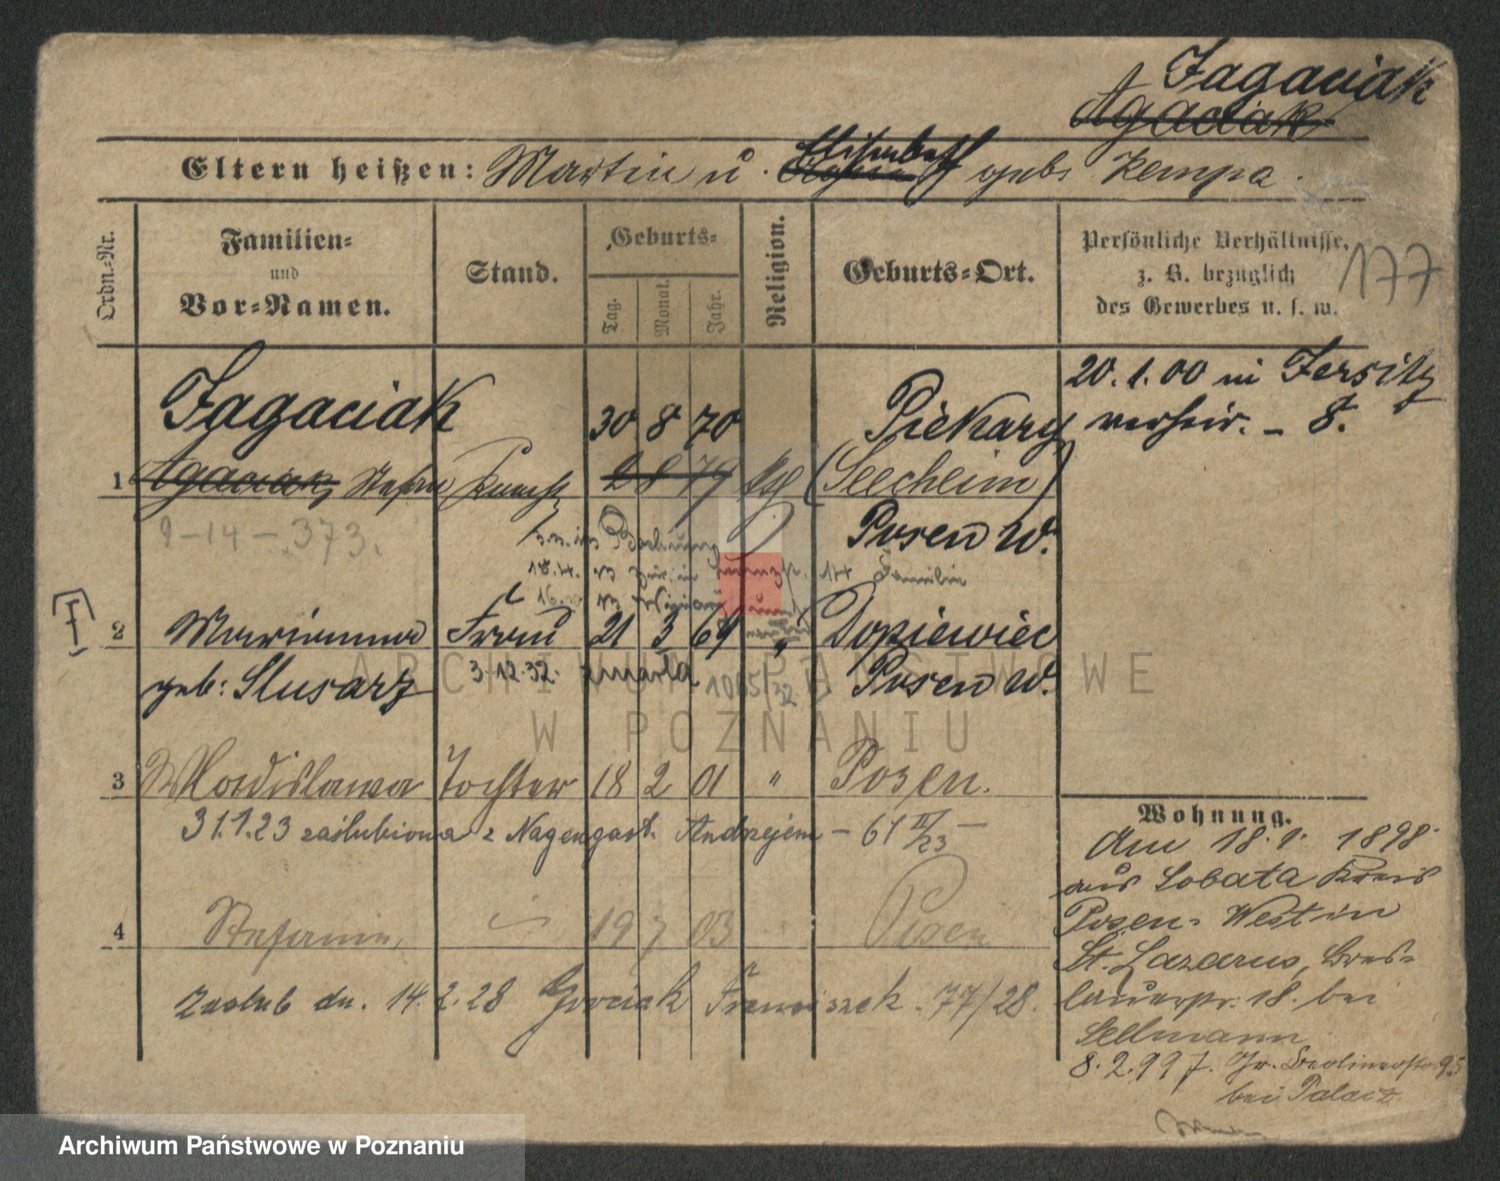 Jagaciak
Agaciak
Eltern heißen: Martin u. Elisabeth geb. Kempa.
Ordn.-Nr.
Familien-
und
Vor-Namen.
Stand.
Geburts-
Tag.
Monat.
Jahr.
Religion.
Geburts-Ort.
Persönliche Verhältnisse,
z. B. bezüglich
des Gewerbes u. s. w.
177
Jagaciak 30 8 70 Piekary
1 Agaciak Stefan 2 8 79 (Seecheim)
9-14-373.
Posen W.
20.1.00 in Jersitz
verheir. - 8.
18.4.
14 Familie
2 Marianna Frau 21 3 69 " Dopiewiec
geb: Slusarz 3.12.32. zmarła Posen W.
3 Wladislawa Tochter 18 2 01 " Posen.
31.1.23 zaślubiona z Nagengast. Andrzejem - 61 II/23 -
4 Stefanie, 19 7 03 Posen
Zaślub dn. 14.2.28 Franciszek. 77/28.
Wohnung.
Am 18. 1898
aus Lobata Kreis
Posen-West in
St. Lazarus, Bres-
lauerstr. 18. bei
Sellmann
8.2.99 J. Berlinerstr. 95
bei Palacz
ARCHIWUM PAŃSTWOWE
W POZNANIU
Archiwum Państwowe w Poznaniu